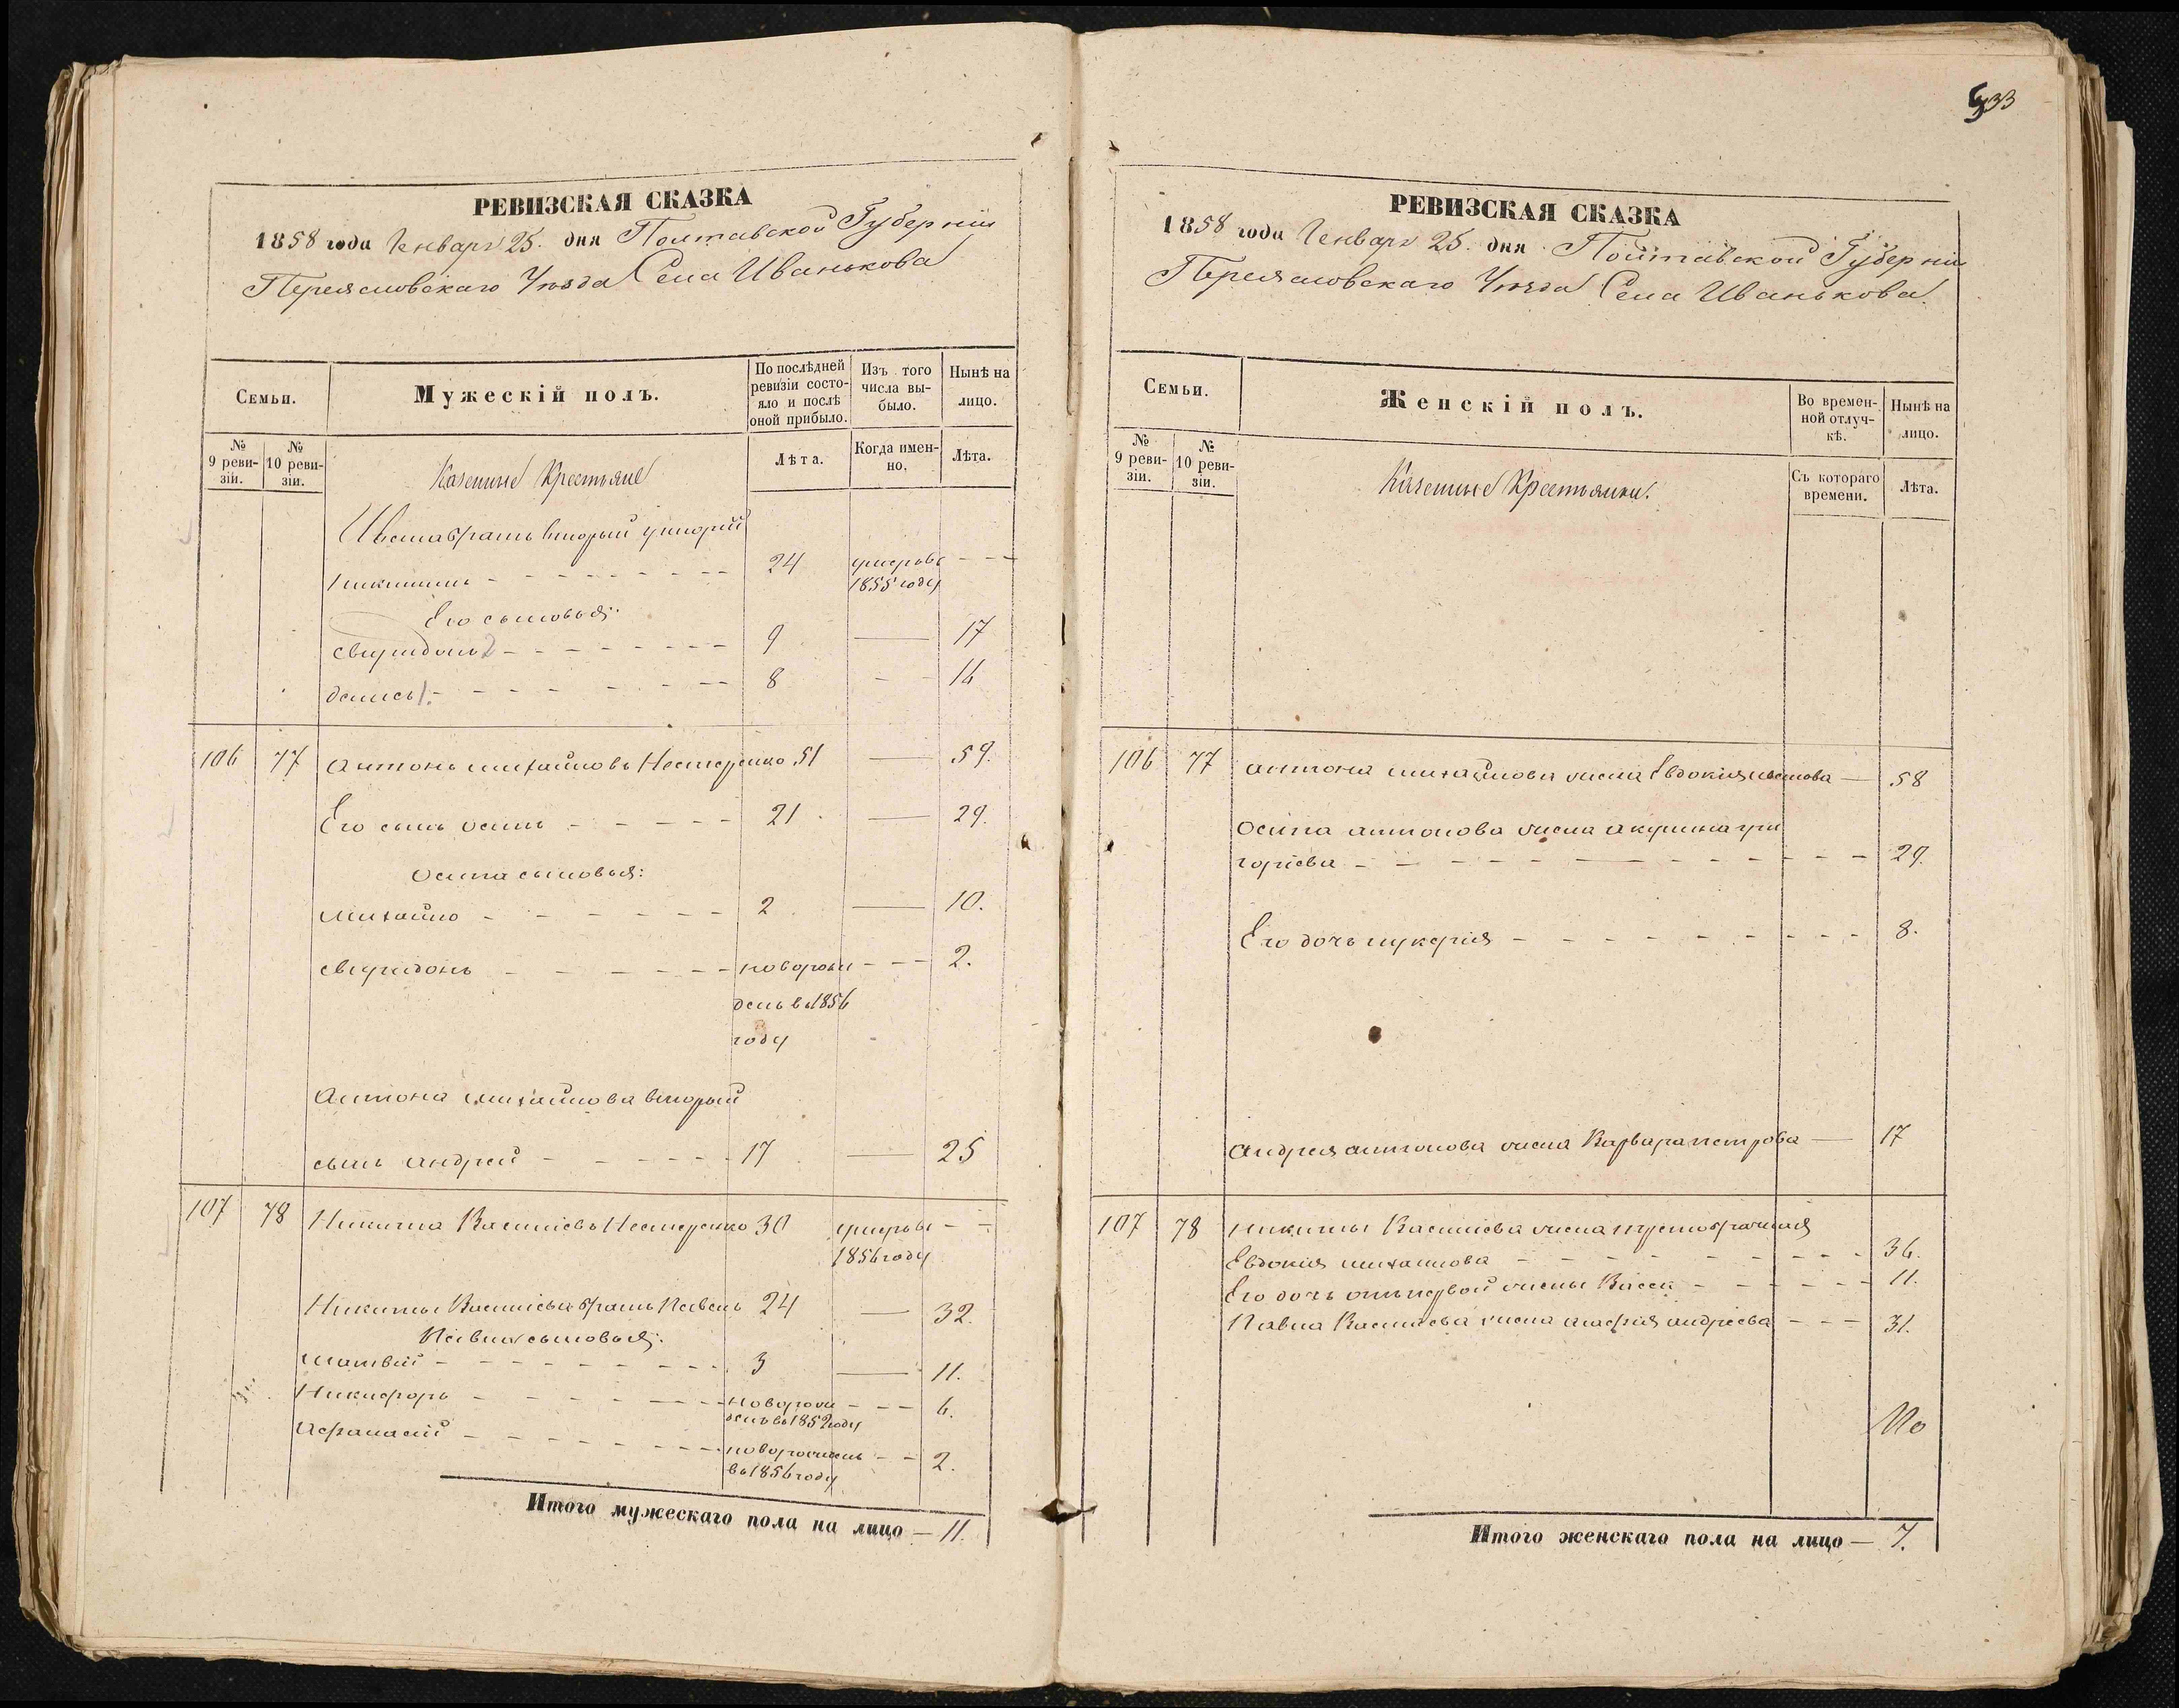 533
РЕВИЗСКАЯ СКАЗКА
1858 года Генваря 25. дня Полтавской Губерніи
Переясловскаго Уѣзда Села Иванькова
Семьи.
Мужескій полъ.
По послѣдней ревизіи состояло и послѣ оной прибыло.
Изъ того числа выбыло.
Нынѣ на лицо.
№ 9 ревизіи.
№ 10 ревизіи.
Казенные Крестьяне
Лѣта.
Когда именно.
Лѣта.
братъ вторый
Никитинъ - - - 24 умеръ въ - - -
1855 году
Его сыновья:
Свиридонъ 2 - - - 9 — 17
Денисъ 1. - - - 8 - - 16
106 77 Антонъ Михайловъ Нестеренко 51 — 59.
Его сынъ Осипъ - - - 21 — 29.
Осипа сыновья:
Михайло - - - 2 — 10.
Свиридонъ - - - новорож - - - 2.
денъ въ 1856
году
Антона Михайлова вторый
сынъ Андрей - - - 17 — 25
107 78 Никита Василіевъ Нестеренко 30 умеръ въ - -
1856 году
Никиты Василіева братъ Павелъ 24 — 32.
Павла сыновья:
Матвій - - - 3 — 11.
Никифоръ - - - новорож - - - 6.
денъ въ 1852 году
Афанасій - - - новорожденъ - - 2.
въ 1856 году
Итого мужескаго пола на лицо — 11.
РЕВИЗСКАЯ СКАЗКА
1858 года Генваря 25. дня Полтавской Губерніи
Переясловскаго Уѣзда Села Иванькова
Семьи.
Женскій полъ.
Во временной отлучкѣ.
Нынѣ на лицо.
№ 9 ревизіи.
№ 10 ревизіи.
Казенные Крестьянки.
Съ котораго времени.
Лѣта.
106 77 Антона Михайлова жена Евдокія — 58
Осипа Антонова жена Акулина Гри
горіева - - - 29.
Его дочь Лукерія - - - 8.
Андрея Антонова жена Варвара Петрова — 17
107 78 Никиты Василіева жена второбрачная
Евдокія Михайлова - - - 36.
Его дочь отъ первой жены Васса - - - 11.
Павла Василіева жена Агафія Андріева - - - 31.
Итого женскаго пола на лицо — 7.